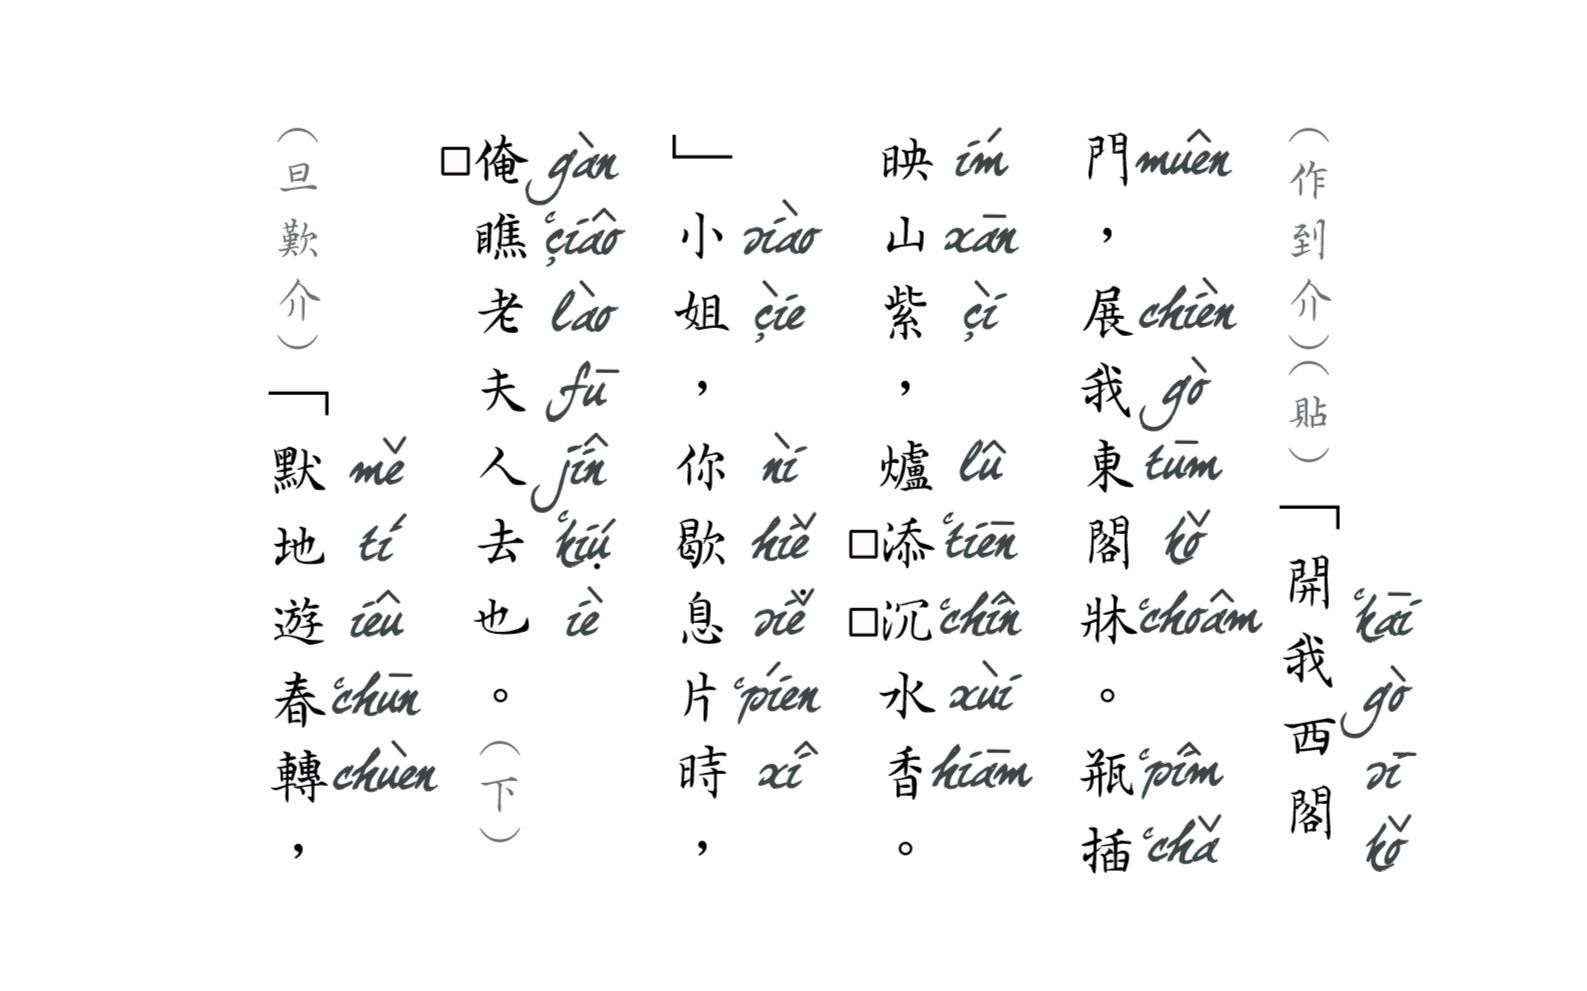 （作到介）（貼）「開我西閣
ʻkāi gò sī kǒ
門，展我東閣牀。瓶插
muên chièn gò tūm kǒ ʻchoâm ʻpîm ʻchǎ
映山紫，爐□添□沉水香。
ím xān çì lû ʻtiēn ʻchîn xùi hiām
」小姐，你歇息片時，
siào çìe nì hiě siě̇ ʻpíen xî
□俺瞧老夫人去也。（下）
gàn ʻçiâo lào fū jîn ʻkiụ́ iè
（旦歎介）「默地遊春轉，
mě tí iêu ʻchūn chùen